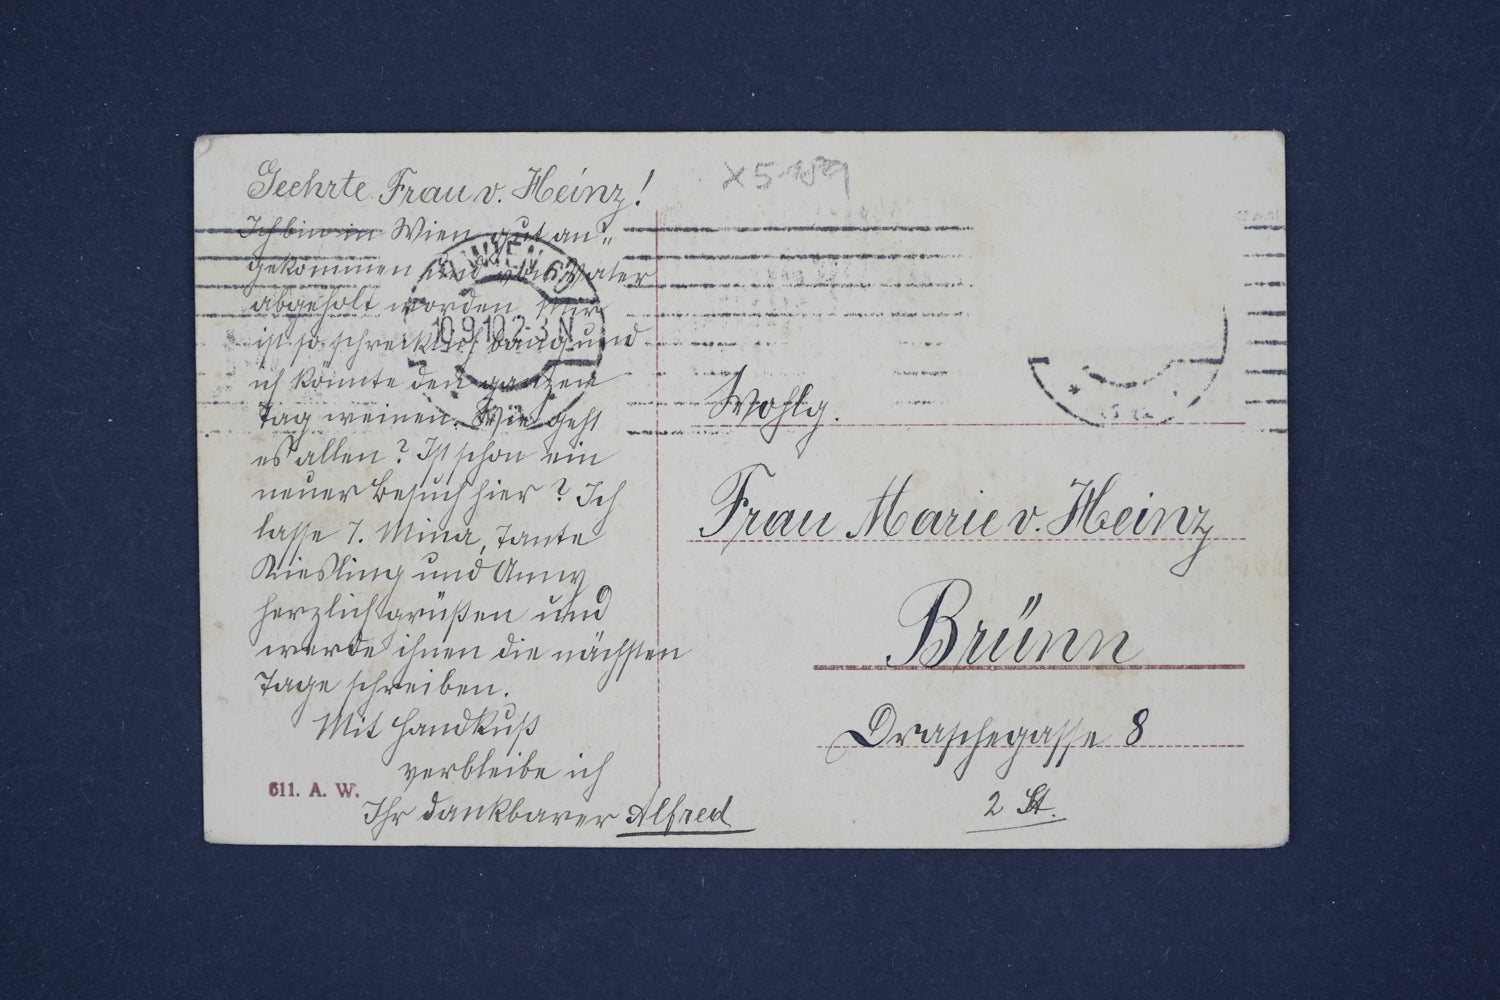 Geehrte Frau v. Heinz!
Ich bin in Wien gut an-
gekommen und vom Vater
abgeholt worden. Mir
ist so schrecklich bang und
ich könnte den ganzen
Tag weinen. Wie geht
es allen? Ist schon ein
neuer Besuch hier? Ich
lasse F. Mina, Tante
Kiesling und Anny
herzlichst grüßen und
werde ihnen die nächsten
Tage schreiben.
Mit Handkuß
verbleibe ich
Ihr dankbarer Alfred
611. A. W.
WIEN
10.9.10 2-3 N
X5
Wohlg.
Frau Marie v. Heinz
Brünn
Draschegasse 8
2 St.